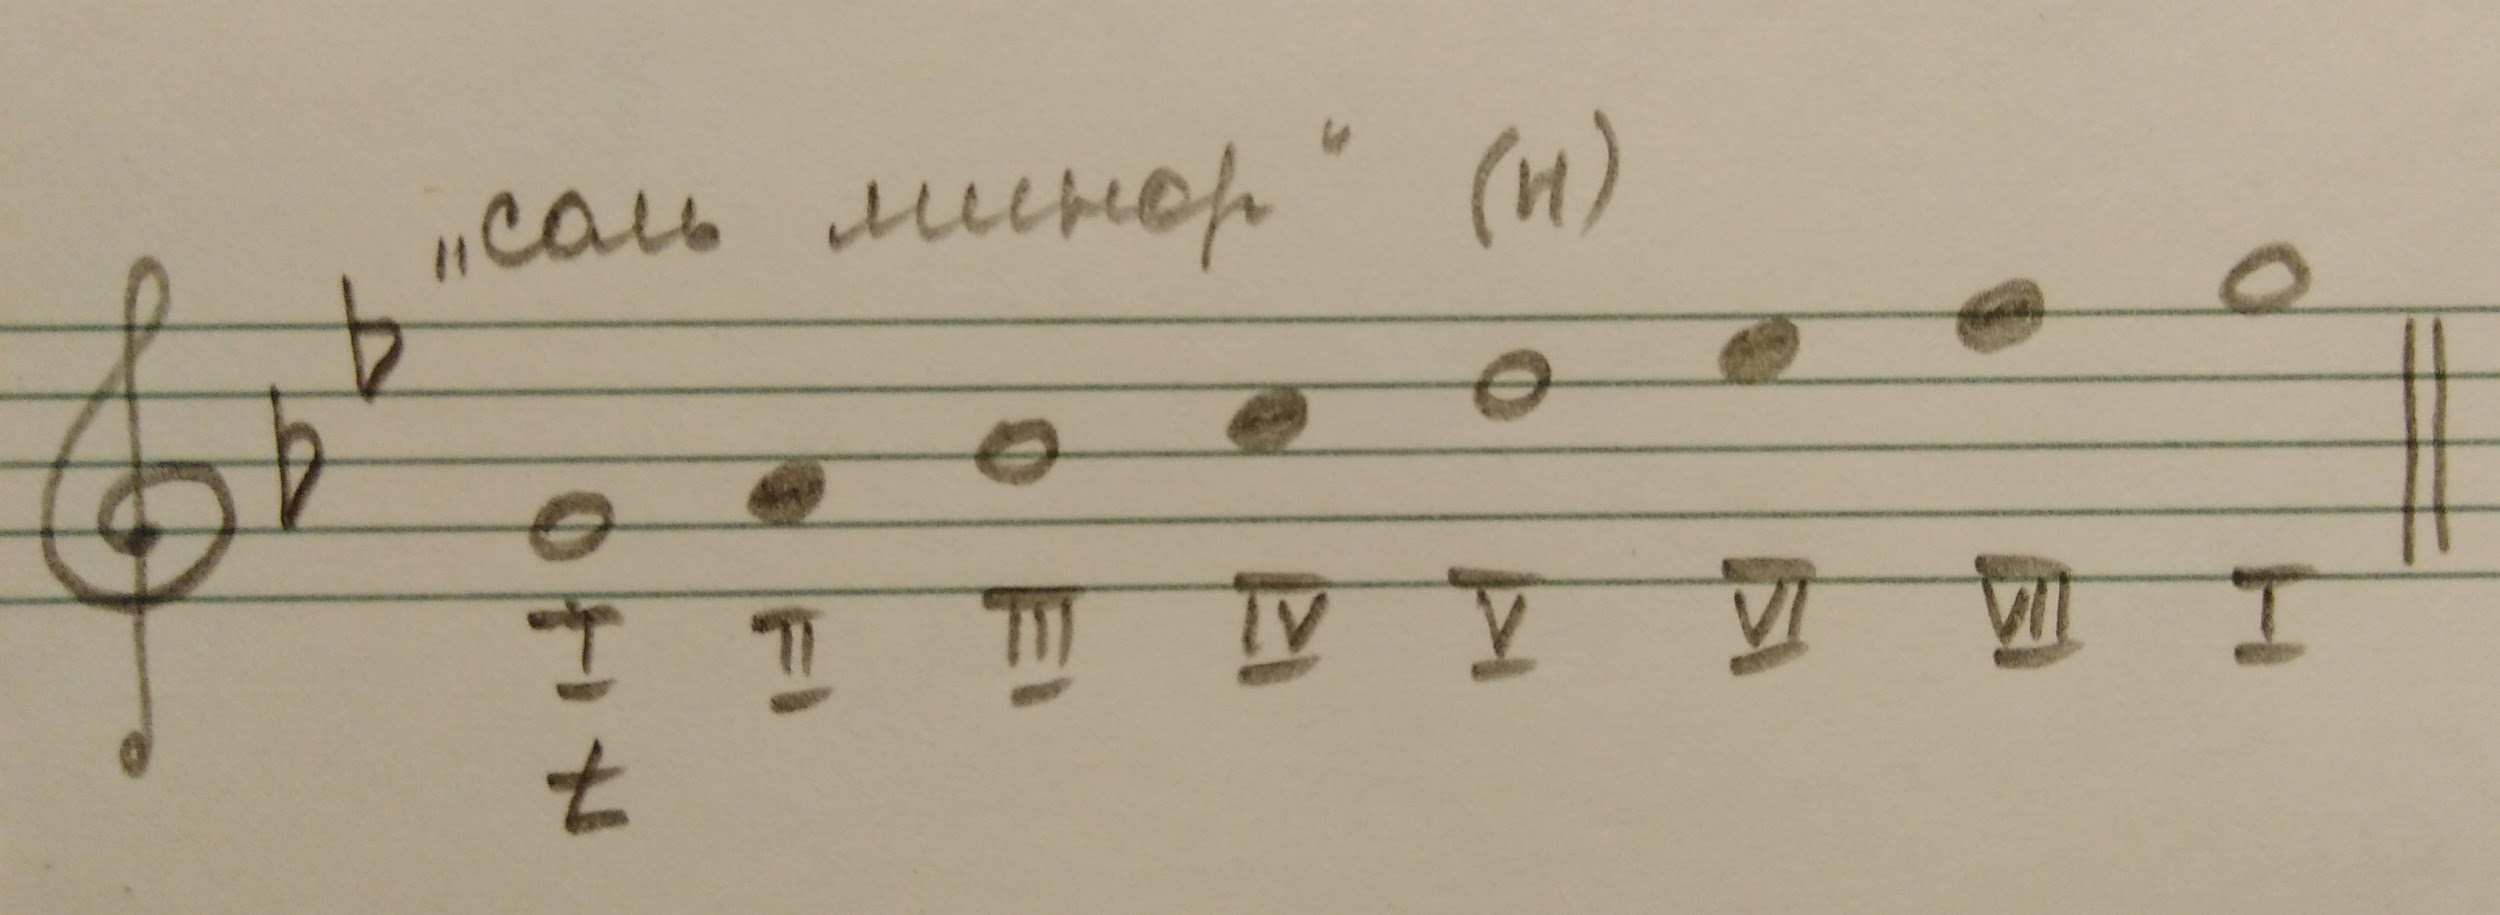 „соль минор“ (н)
I II III IV V VI VII I
t